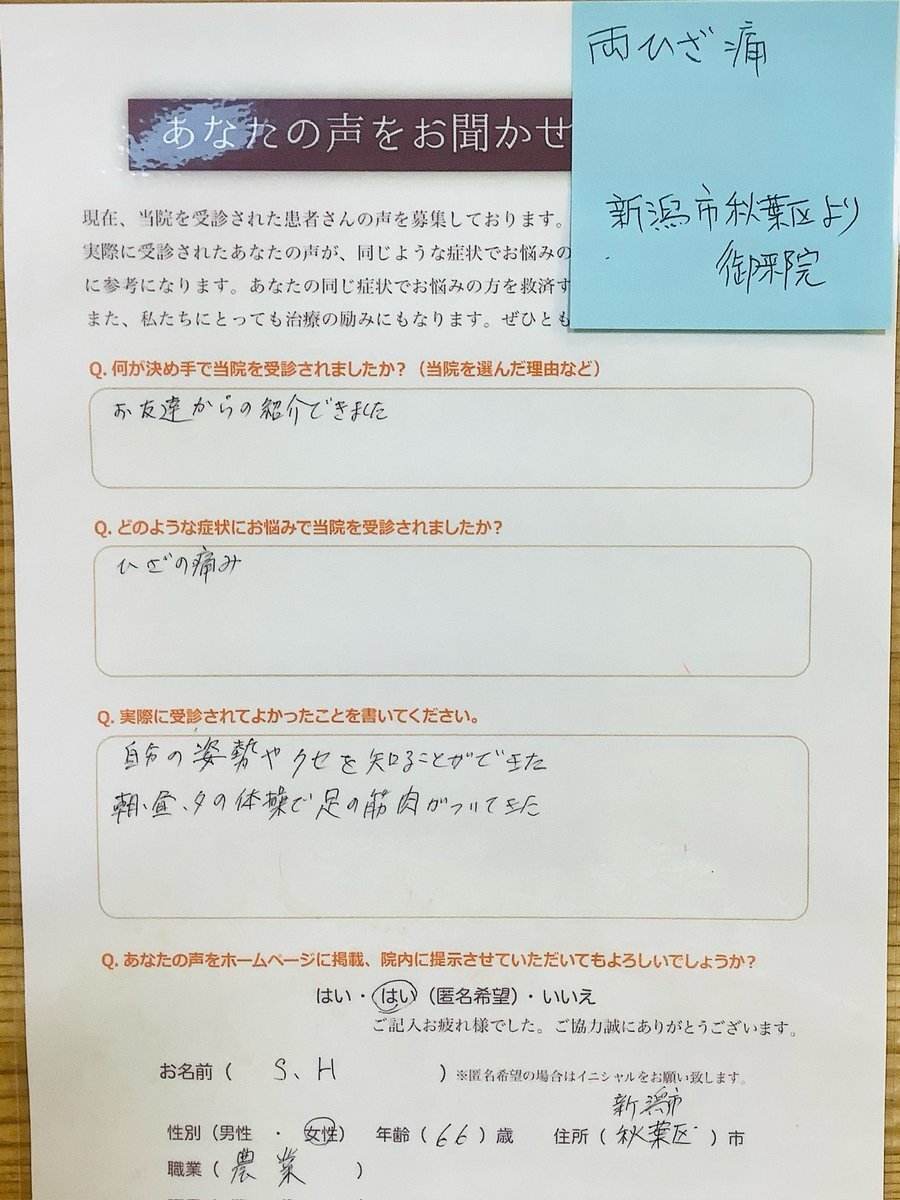 両ひざ痛
新潟市秋葉区より
御来院
あなたの声をお聞かせ
現在、当院を受診された患者さんの声を募集しております。
実際に受診されたあなたの声が、同じような症状でお悩みの
に参考になります。あなたの同じ症状でお悩みの方を救済す
また、私たちにとっても治療の励みにもなります。ぜひとも
Q. 何が決め手で当院を受診されましたか?（当院を選んだ理由など）
お友達からの紹介できました
Q. どのような症状にお悩みで当院を受診されましたか?
ひざの痛み
Q. 実際に受診されてよかったことを書いてください。
自分の姿勢やクセを知ることができた
朝、昼、夕の体操で足の筋肉がついてきた
Q. あなたの声をホームページに掲載、院内に提示させていただいてもよろしいでしょうか?
はい・はい（匿名希望）・いいえ
ご記入お疲れ様でした。ご協力誠にありがとうございます。
お名前（ S、H ）※匿名希望の場合はイニシャルをお願い致します。
性別（男性 ・ 女性） 年齢（66）歳 住所（新潟市秋葉区）市
職業（農業 ）